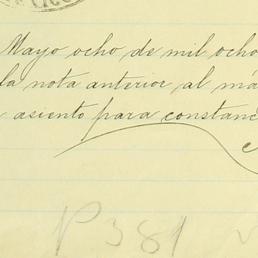 Mayo ocho de mil ocho
la nota anterior al má
asiento para constanc
P 381